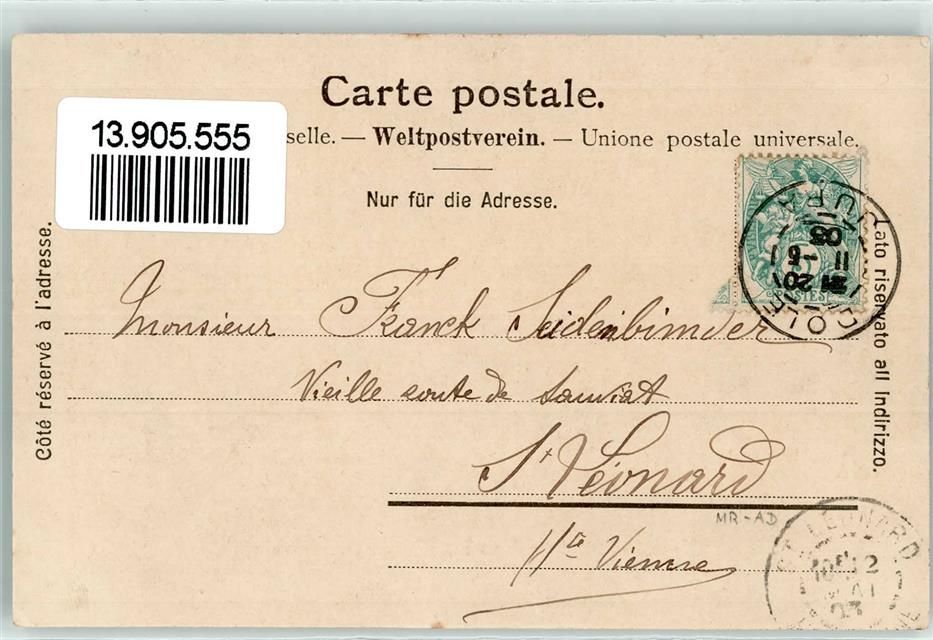 Carte postale.
13.905.555
selle. — Weltpostverein. — Unione postale universale.
Nur für die Adresse.
Côté réservé à l'adresse.
Lato riservato all Indirizzo.
POSTES
DOLE
JURA
20
5
03
Monsieur Franck Seidenbinder
Vieille route de Sauviat
St Léonard
Hte Vienne
MR-AD
ST LEONARD
12
MAI
03